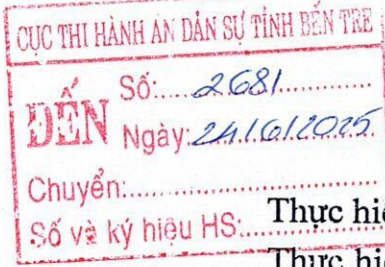 CỤC THI HÀNH ÁN DÂN SỰ TỈNH BẾN TRE
ĐẾN
Số:.....2681..............
Ngày:24/6/2025
Chuyển:................................
Số và ký hiệu HS:............
Thực hiệ
Thực hiệ